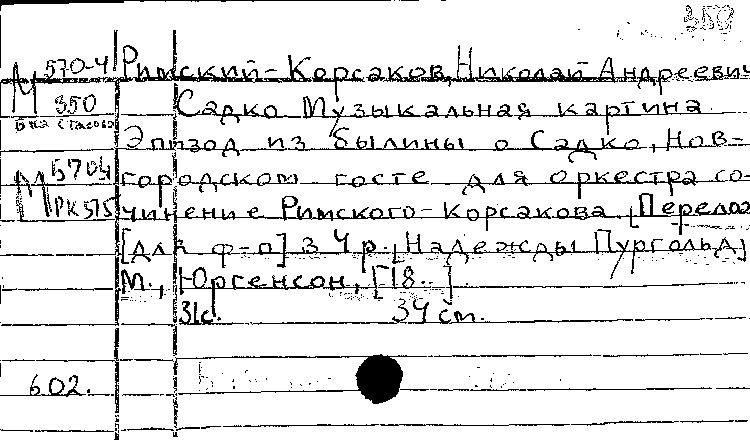 350
М 570-4 Римский-Корсаков, Николай Андреевич
350 Садко Музыкальная картина.
Б-ка Стасова Эпизод из былины о Садко, Нов-
М 570-4 городском госте для оркестра со-
РК 575 чинение Римского-Корсакова. [Перелож
[для ф-п] в 4 р. Надежды Пургольд]
М., Юргенсон, [18..]
31с. 34 см.
602.